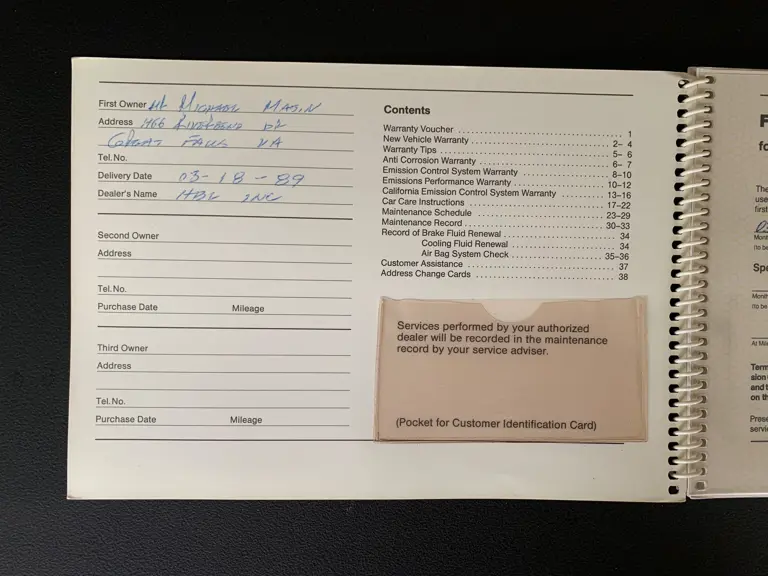 First Owner Mr Michael Mason
Address 466 Riverbend Dr
Great Falls VA
Tel. No.
Delivery Date 03-18-89
Dealer's Name HBL INC
Second Owner
Address
Tel. No.
Purchase Date Mileage
Third Owner
Address
Tel. No.
Purchase Date Mileage
Contents
Warranty Voucher 1
New Vehicle Warranty 2– 4
Warranty Tips 5– 6
Anti Corrosion Warranty 6– 7
Emission Control System Warranty 8–10
Emissions Performance Warranty 10–12
California Emission Control System Warranty 13–16
Car Care Instructions 17–22
Maintenance Schedule 23–29
Maintenance Record 30–33
Record of Brake Fluid Renewal 34
Cooling Fluid Renewal 34
Air Bag System Check 35–36
Customer Assistance 37
Address Change Cards 38
Services performed by your authorized
dealer will be recorded in the maintenance
record by your service advisor.
(Pocket for Customer Identification Card)